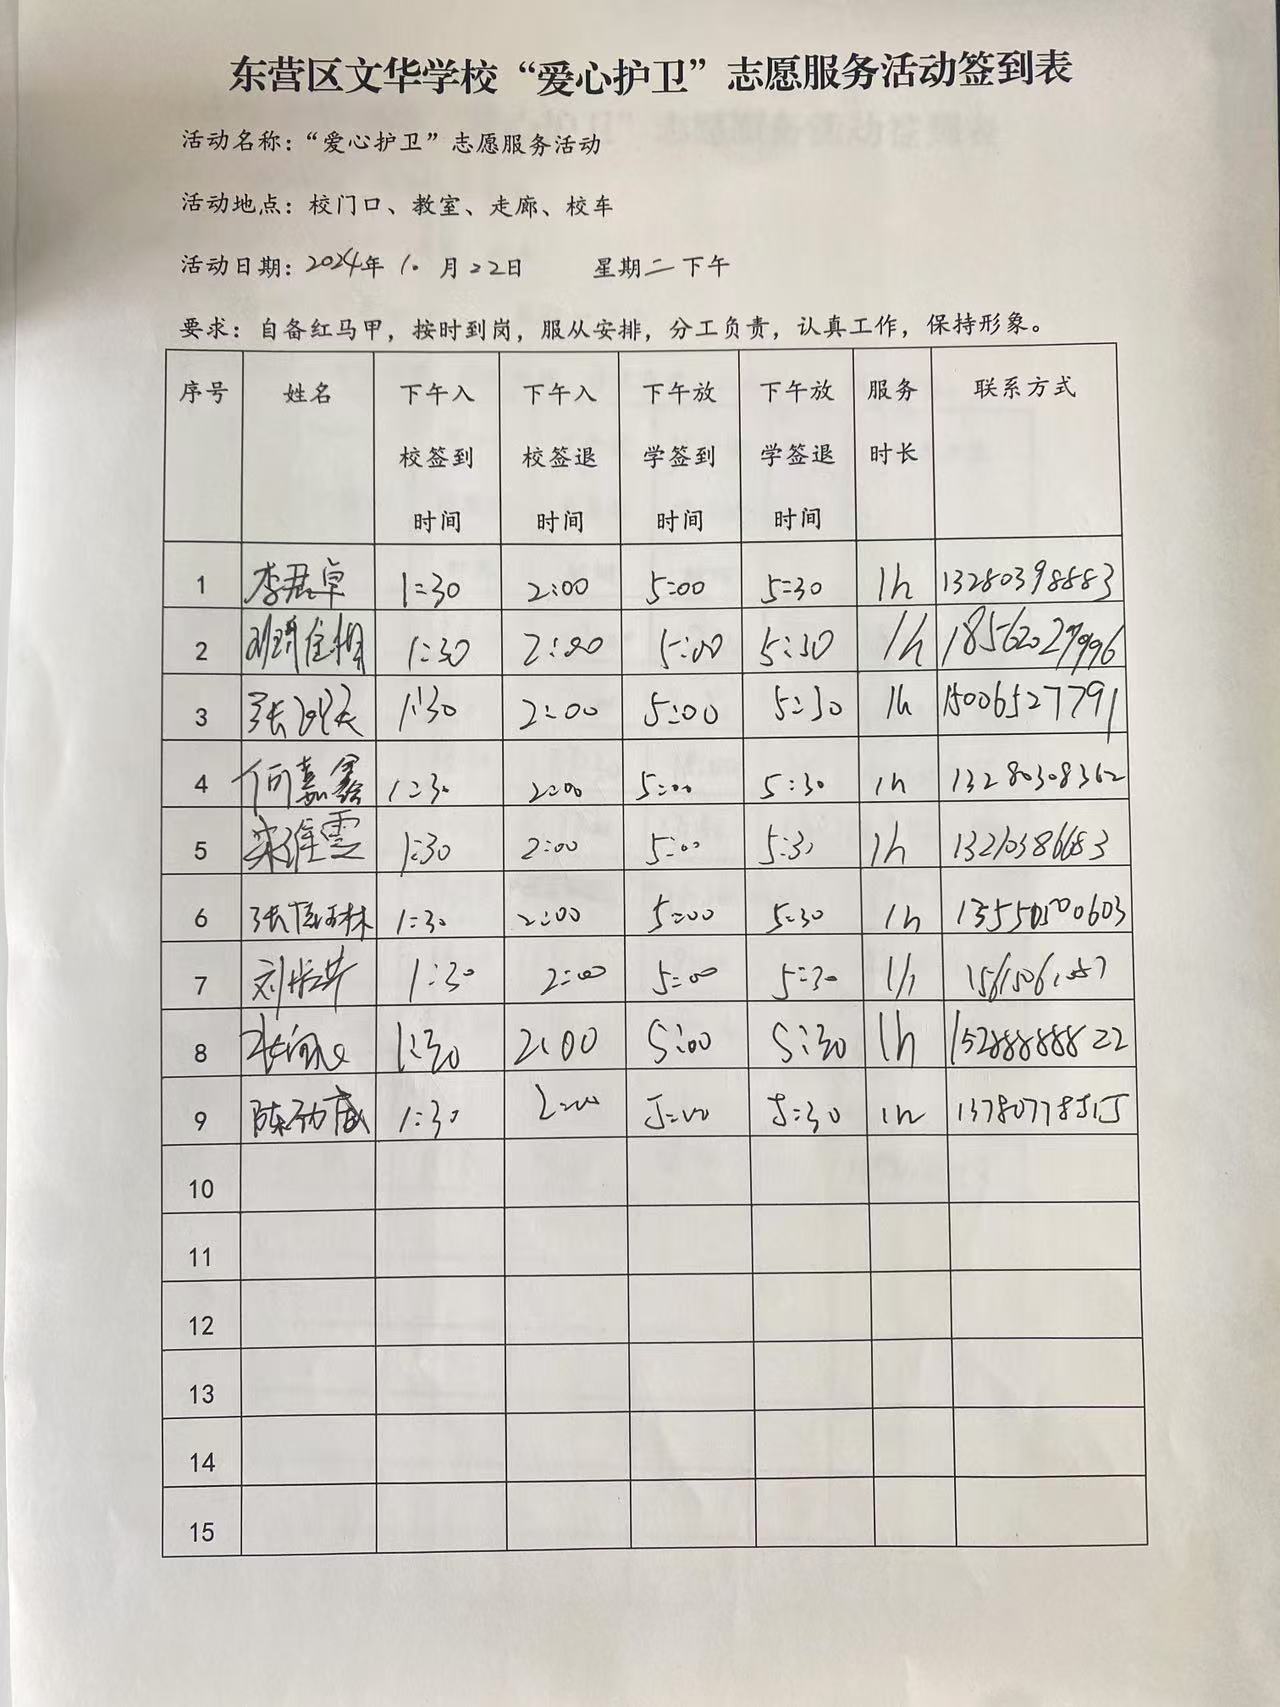 东营区文华学校“爱心护卫”志愿服务活动签到表
活动名称：“爱心护卫”志愿服务活动
活动地点：校门口、教室、走廊、校车
活动日期：2024年 10月22日 星期二下午
要求：自备红马甲，按时到岗，服从安排，分工负责，认真工作，保持形象。
序号 姓名 下午入校签到时间 下午入校签退时间 下午放学签到时间 下午放学签退时间 服务时长 联系方式
1 李君卓 1:30 2:00 5:00 5:30 1h 13280398883
2 1:30 2:00 5:00 5:30 1h 18562027996
3 1:30 2:00 5:00 5:30 1h 15006527791
4 何嘉鑫 1:30 2:00 5:00 5:30 1h 13280308362
5 1:30 2:00 5:00 5:30 1h 13210386683
6 1:30 2:00 5:00 5:30 1h
7 1:30 2:00 5:00 5:30 1h
8 1:30 2:00 5:00 5:30 1h 15288888822
9 1:30 2:00 5:00 5:30 1h
10
11
12
13
14
15